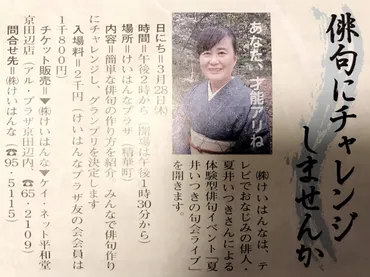 俳句にチャレンジ
しませんか
あなた、才能アリね
㈱けいはんなは、テ
レビでおなじみの俳人・
夏井いつきさんによる
体験型俳句イベント「夏
井いつきの句会ライブ」
を開きます。
日にち＝3月28日㈭
時間＝午後2時から（開場は午後1時30分から）
場所＝けいはんなプラザ（精華町）
内容＝簡単な俳句の作り方を紹介、みんなで俳句作り
にチャレンジし、グランプリを決定します
入場料＝2千円（けいはんなプラザ友の会会員は
1千800円）
チケット販売＝▼㈱けいはんな▼ケイ・ネット平和堂
京田辺店（アル・プラザ京田辺内、☎65・2109）
問合せ先＝㈱けいはんな（☎95・5115）